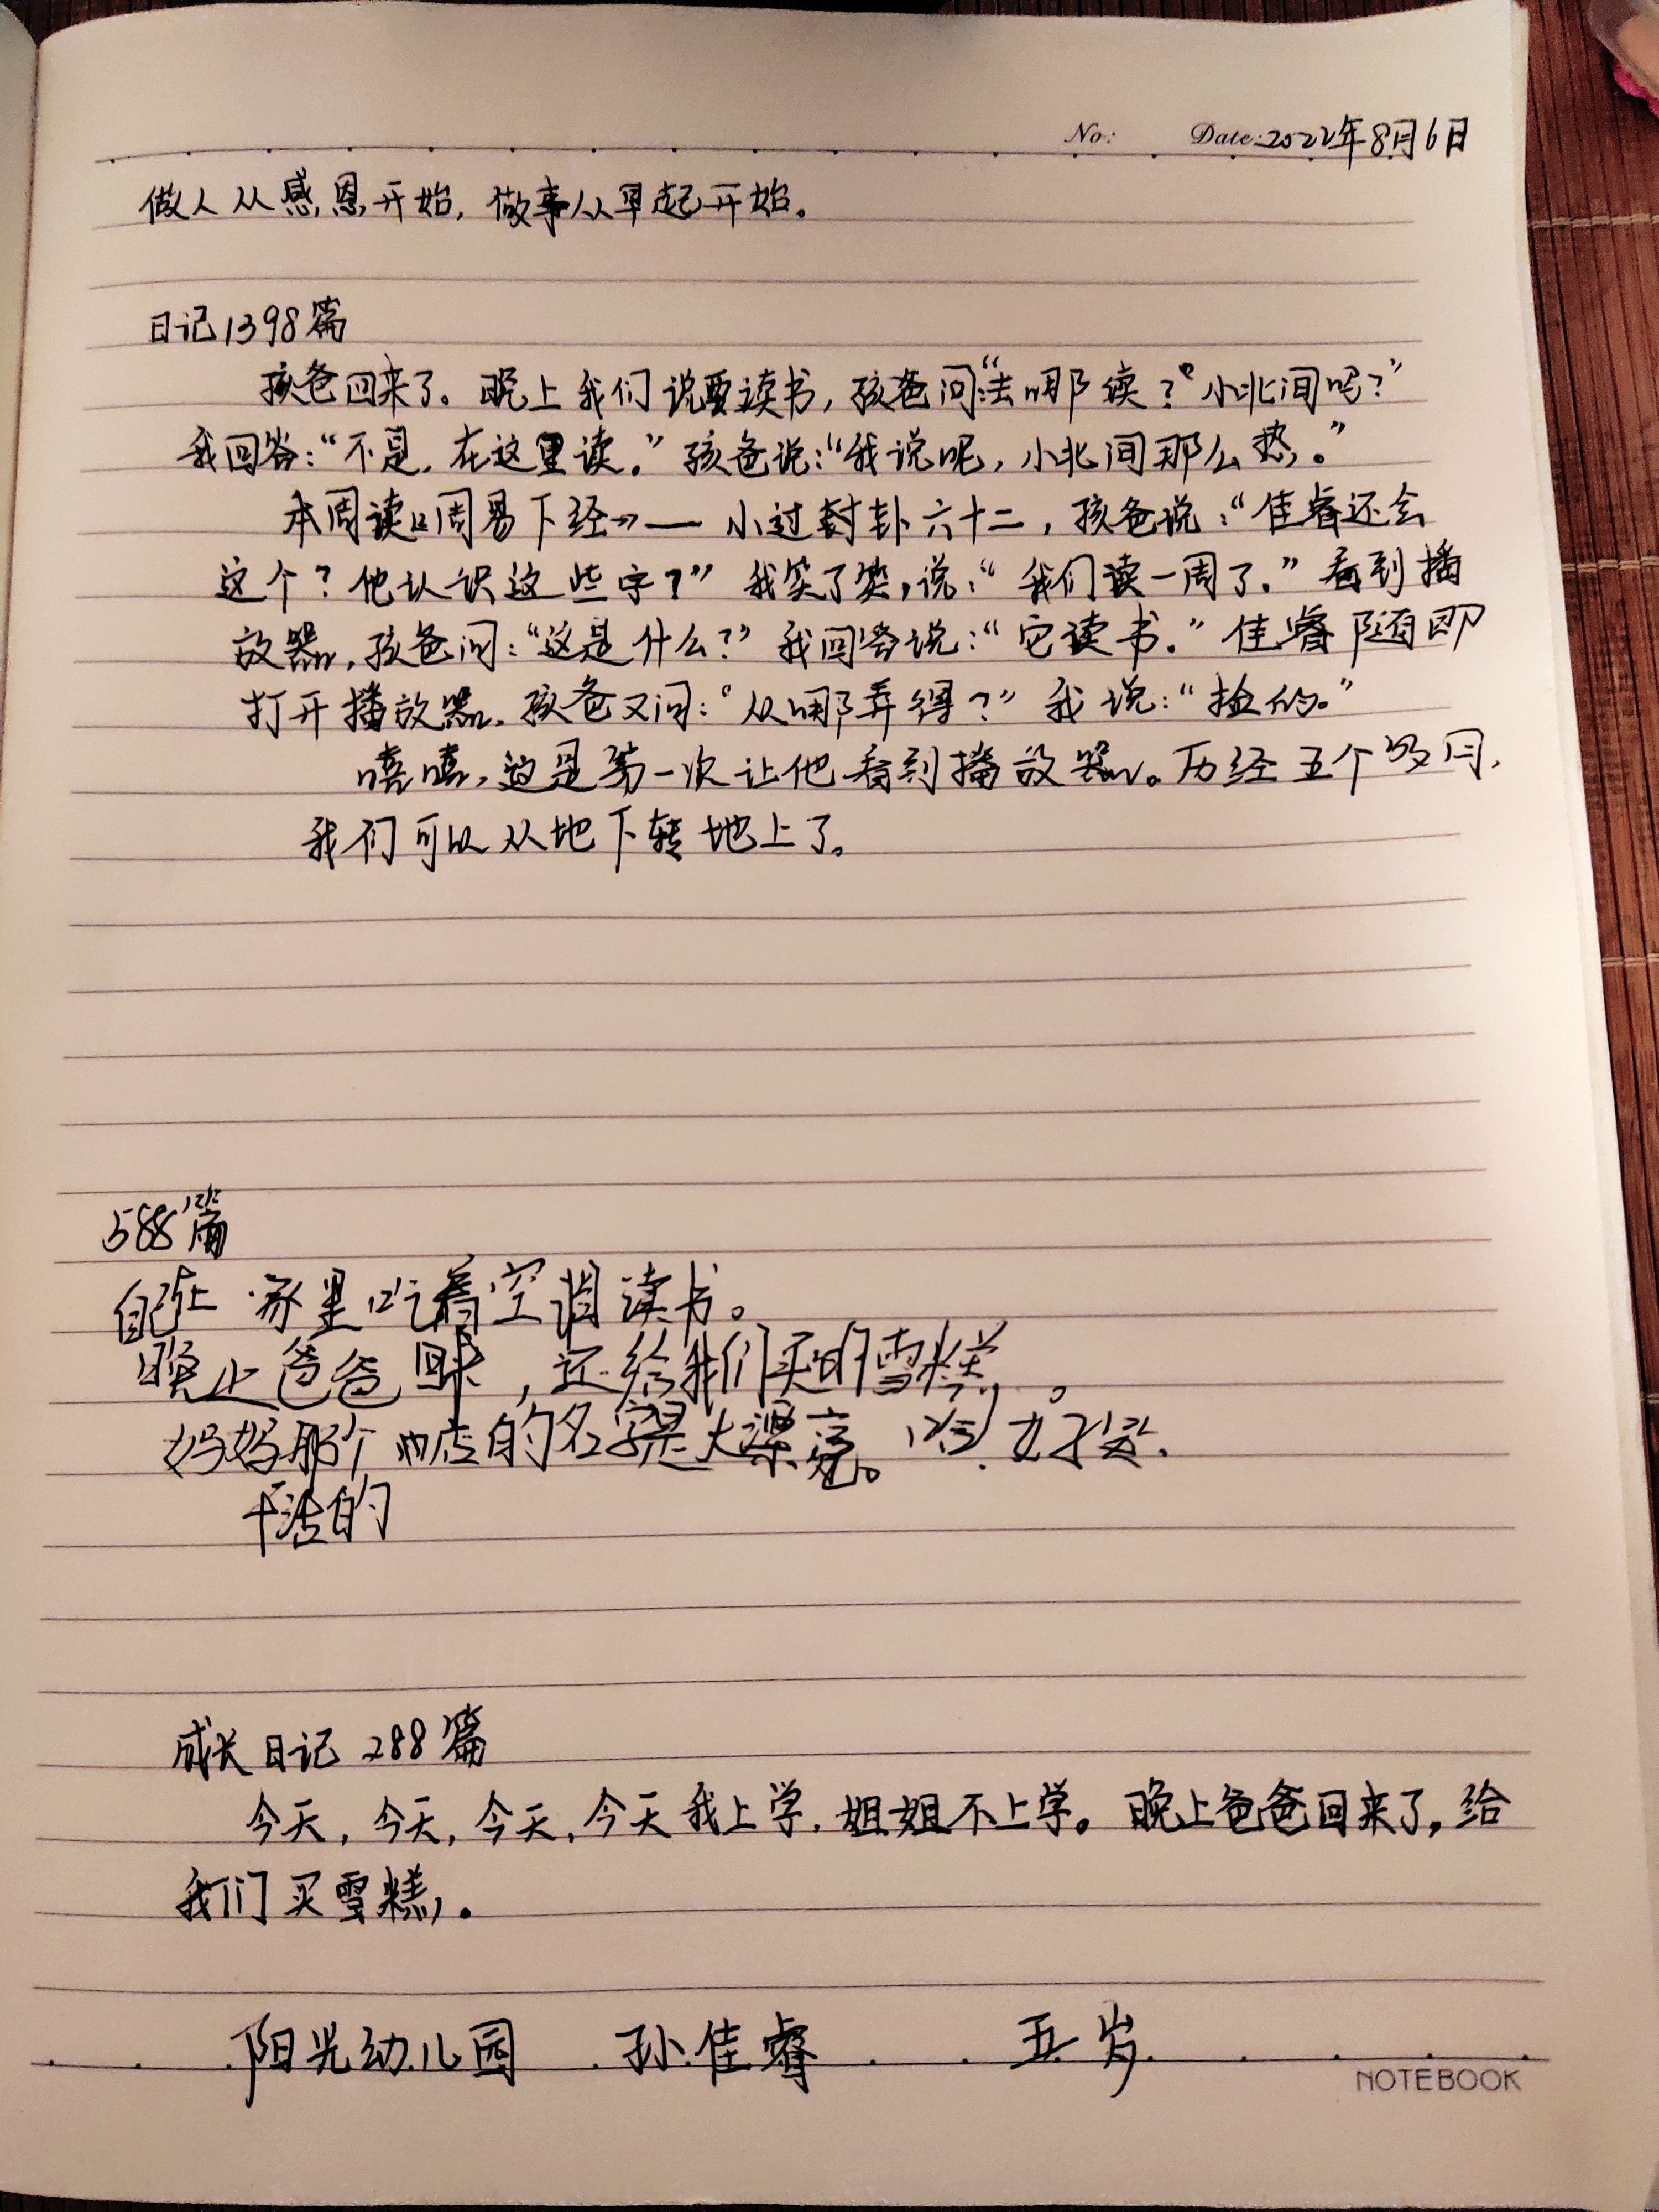 No: Date: 2022年8月6日
做人从感恩开始，做事从早起开始。
日记1398篇
孩爸回来了。晚上我们说要读书，孩爸问：“去哪读？”“小北间吗？”
我回答：“不是，在这里读。”孩爸说：“我说呢，小北间那么热。”
本周读《周易下经》— 小过封卦六十二，孩爸说：“佳睿还会
这个？他认识这些字？”我笑了笑，说：“我们读一周了。”看到播
放器，孩爸问：“这是什么？”我回答说：“它读书。”佳睿随即
打开播放器，孩爸又问：“从哪弄得？”我说：“捡的。”
嘻嘻，这是第一次让他看到播放器。历经五个多月，
我们可以从地下转地上了。
588篇
自己在家里吃着空调读书。
晚上爸爸回来，还给我们买的雪糕。
妈妈那个店的名字是大漂亮。
干活的
成长日记 288篇
今天，今天，今天，今天我上学，姐姐不上学。晚上爸爸回来了，给
我们买雪糕。
阳光幼儿园 孙佳睿 五岁
NOTEBOOK